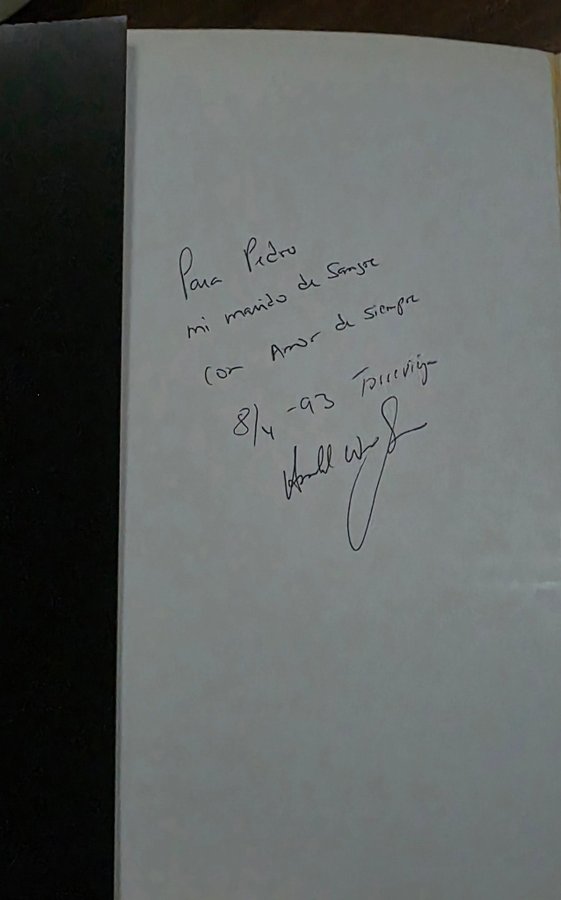 Para Pedro
mi marido de Sangre
con Amor de siempre
8/4 -93 Torrevieja
Harald